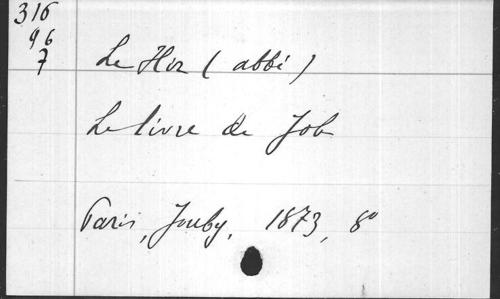 316
96
7
Le Hir (abbé)
Le livre de Job
Paris, Jouby, 1873, 8º